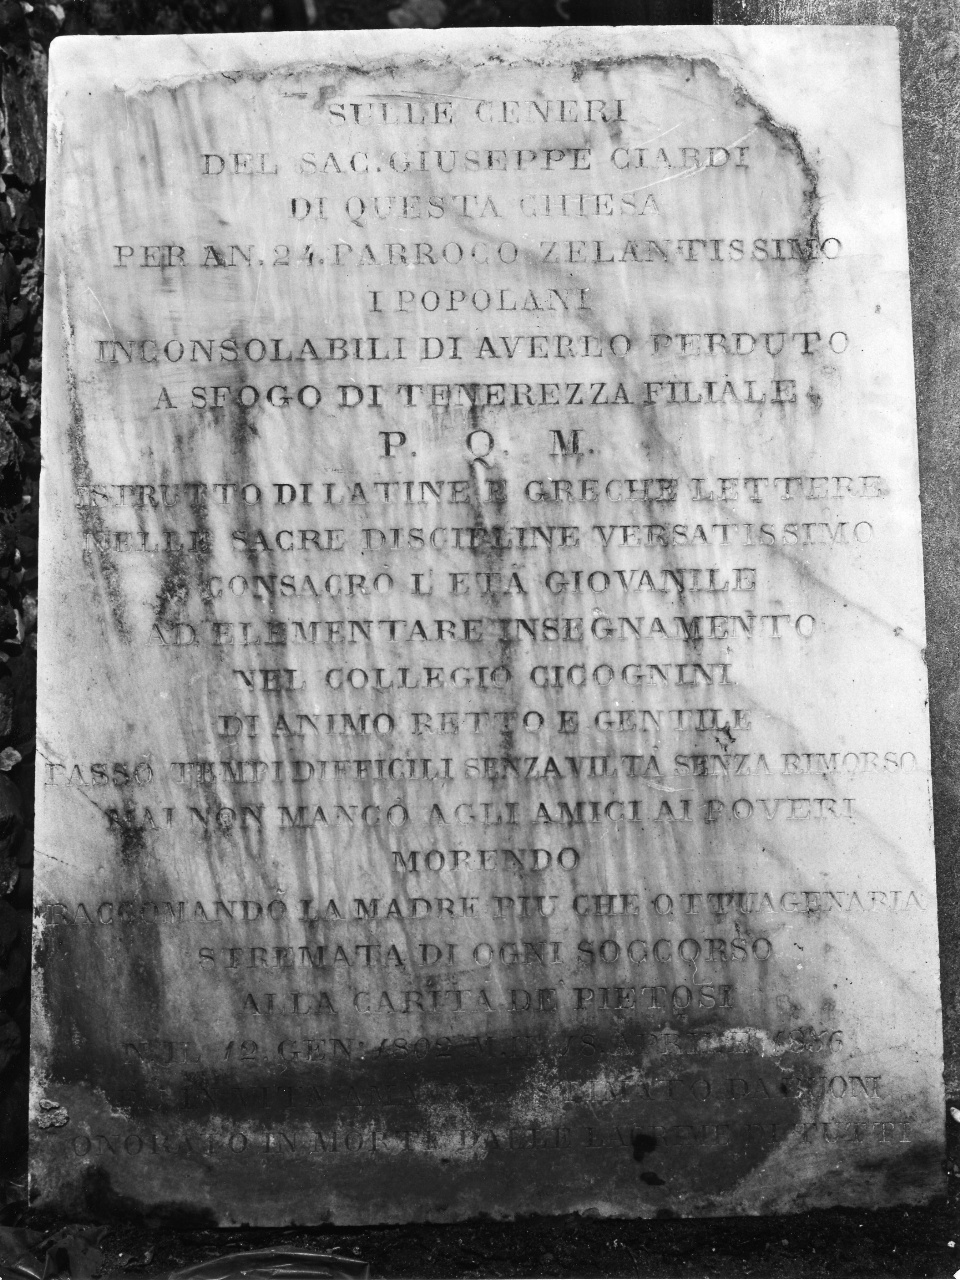 SULLE CENERI
DEL SAC. GIUSEPPE CIARDI
DI QUESTA CHIESA
PER AN. 24. PARROCO ZELANTISSIMO
I POPOLANI
INCONSOLABILI DI AVERLO PERDUTO
A SFOGO DI TENEREZZA FILIALE
P. Q. M.
ISTRUTTO DI LATINE E GRECHE LETTERE
NELLE SACRE DISCIPLINE VERSATISSIMO
CONSACRÒ L'ETÀ GIOVANILE
AD ELEMENTARE INSEGNAMENTO
NEL COLLEGIO CICOGNINI
DI ANIMO RETTO E GENTILE
PASSÒ TEMPI DIFFICILI SENZA VILTÀ SENZA RIMORSO
MAI NON MANCÒ AGLI AMICI AI POVERI
MORENDO
RACCOMANDÒ LA MADRE PIU CHE OTTUAGENARIA
STREMATA DI OGNI SOCCORSO
ALLA CARITÀ DE' PIETOSI
N. IL 12. GEN. 1802 M. 18. APRILE
IN VITA DA BUONI
ONORATO IN MORTE DALLE LACRIME DI TUTTI